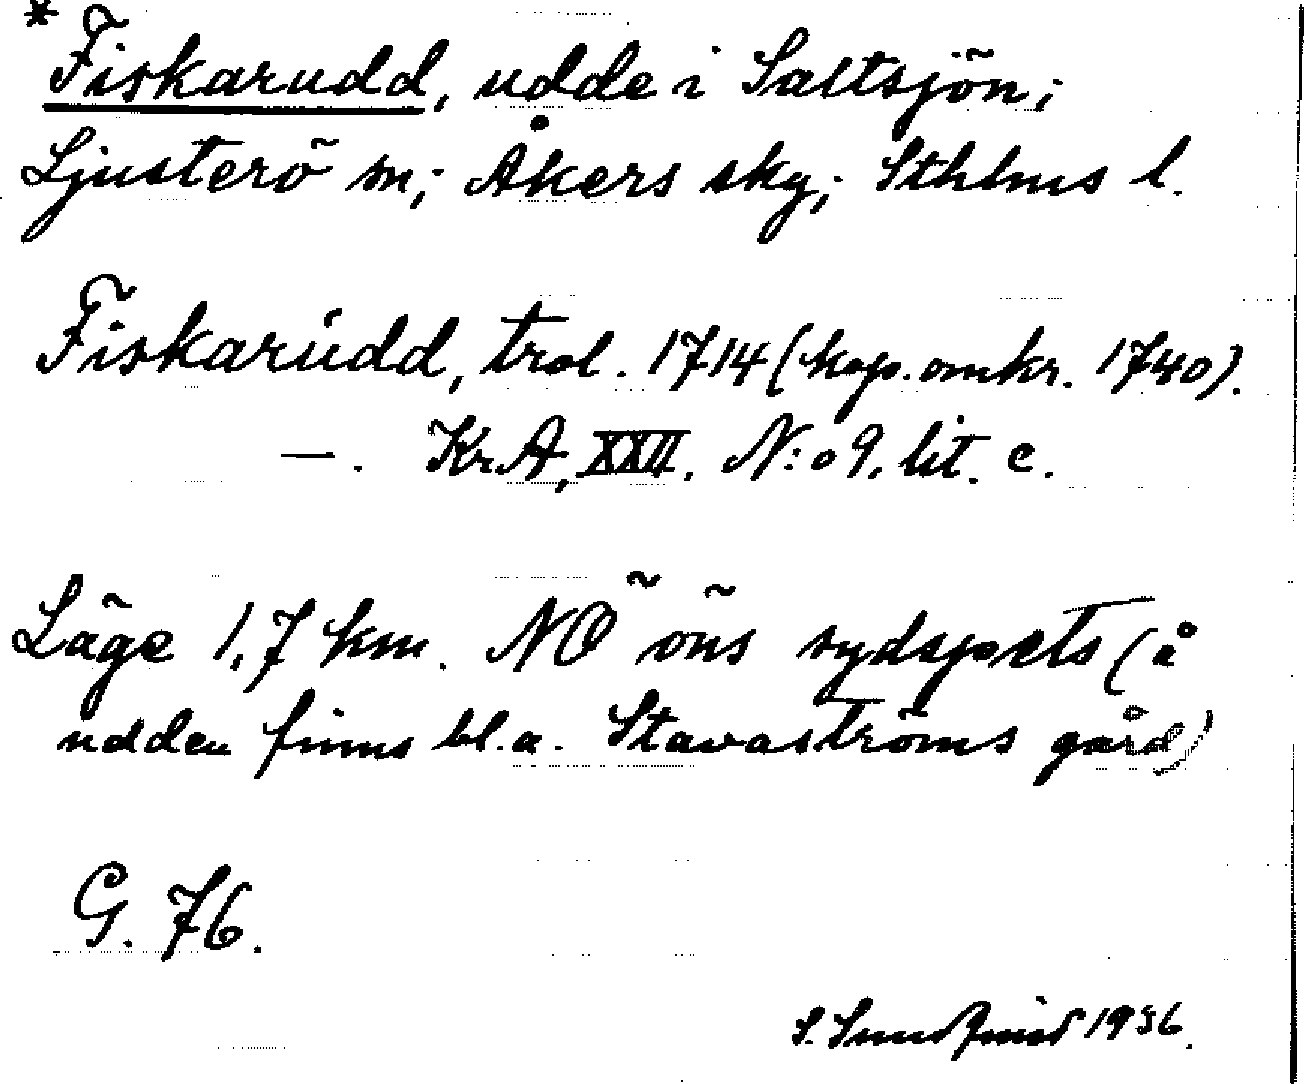 * Fiskarudd, udde i Saltsjön;
Ljusterö sn; Åkers skg; Sthlms l.
Fiskarudd, trol. 1714 (kop. omkr. 1740).
—. Kr.A, XXII. N:o 9. lit. c.
Läge 1,7 km. NÖ öns sydspets (å
udden finns bl.a. Stavaströms gård)
G. 76.
S. 1936.